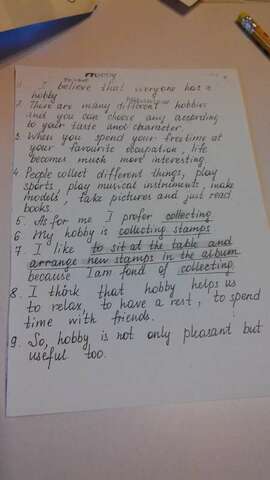 Hobby
1. I believe that everyone has a
hobby
2. There are many different hobbies
and you can choose any according
to your taste and character.
3. When you spend your free time at
your favourite occupation, life
becomes much more interesting.
4. People collect different things, play
sports, play musical instruments, make
models, take pictures and just read
books.
5. As for me I prefer collecting
6. My hobby is collecting stamps
7. I like to sit at the table and
arrange new stamps in the album
because I am fond of collecting
8. I think that hobby helps us
to relax, to have a rest, to spend
time with friends.
9. So, hobby is not only pleasant but
useful too.